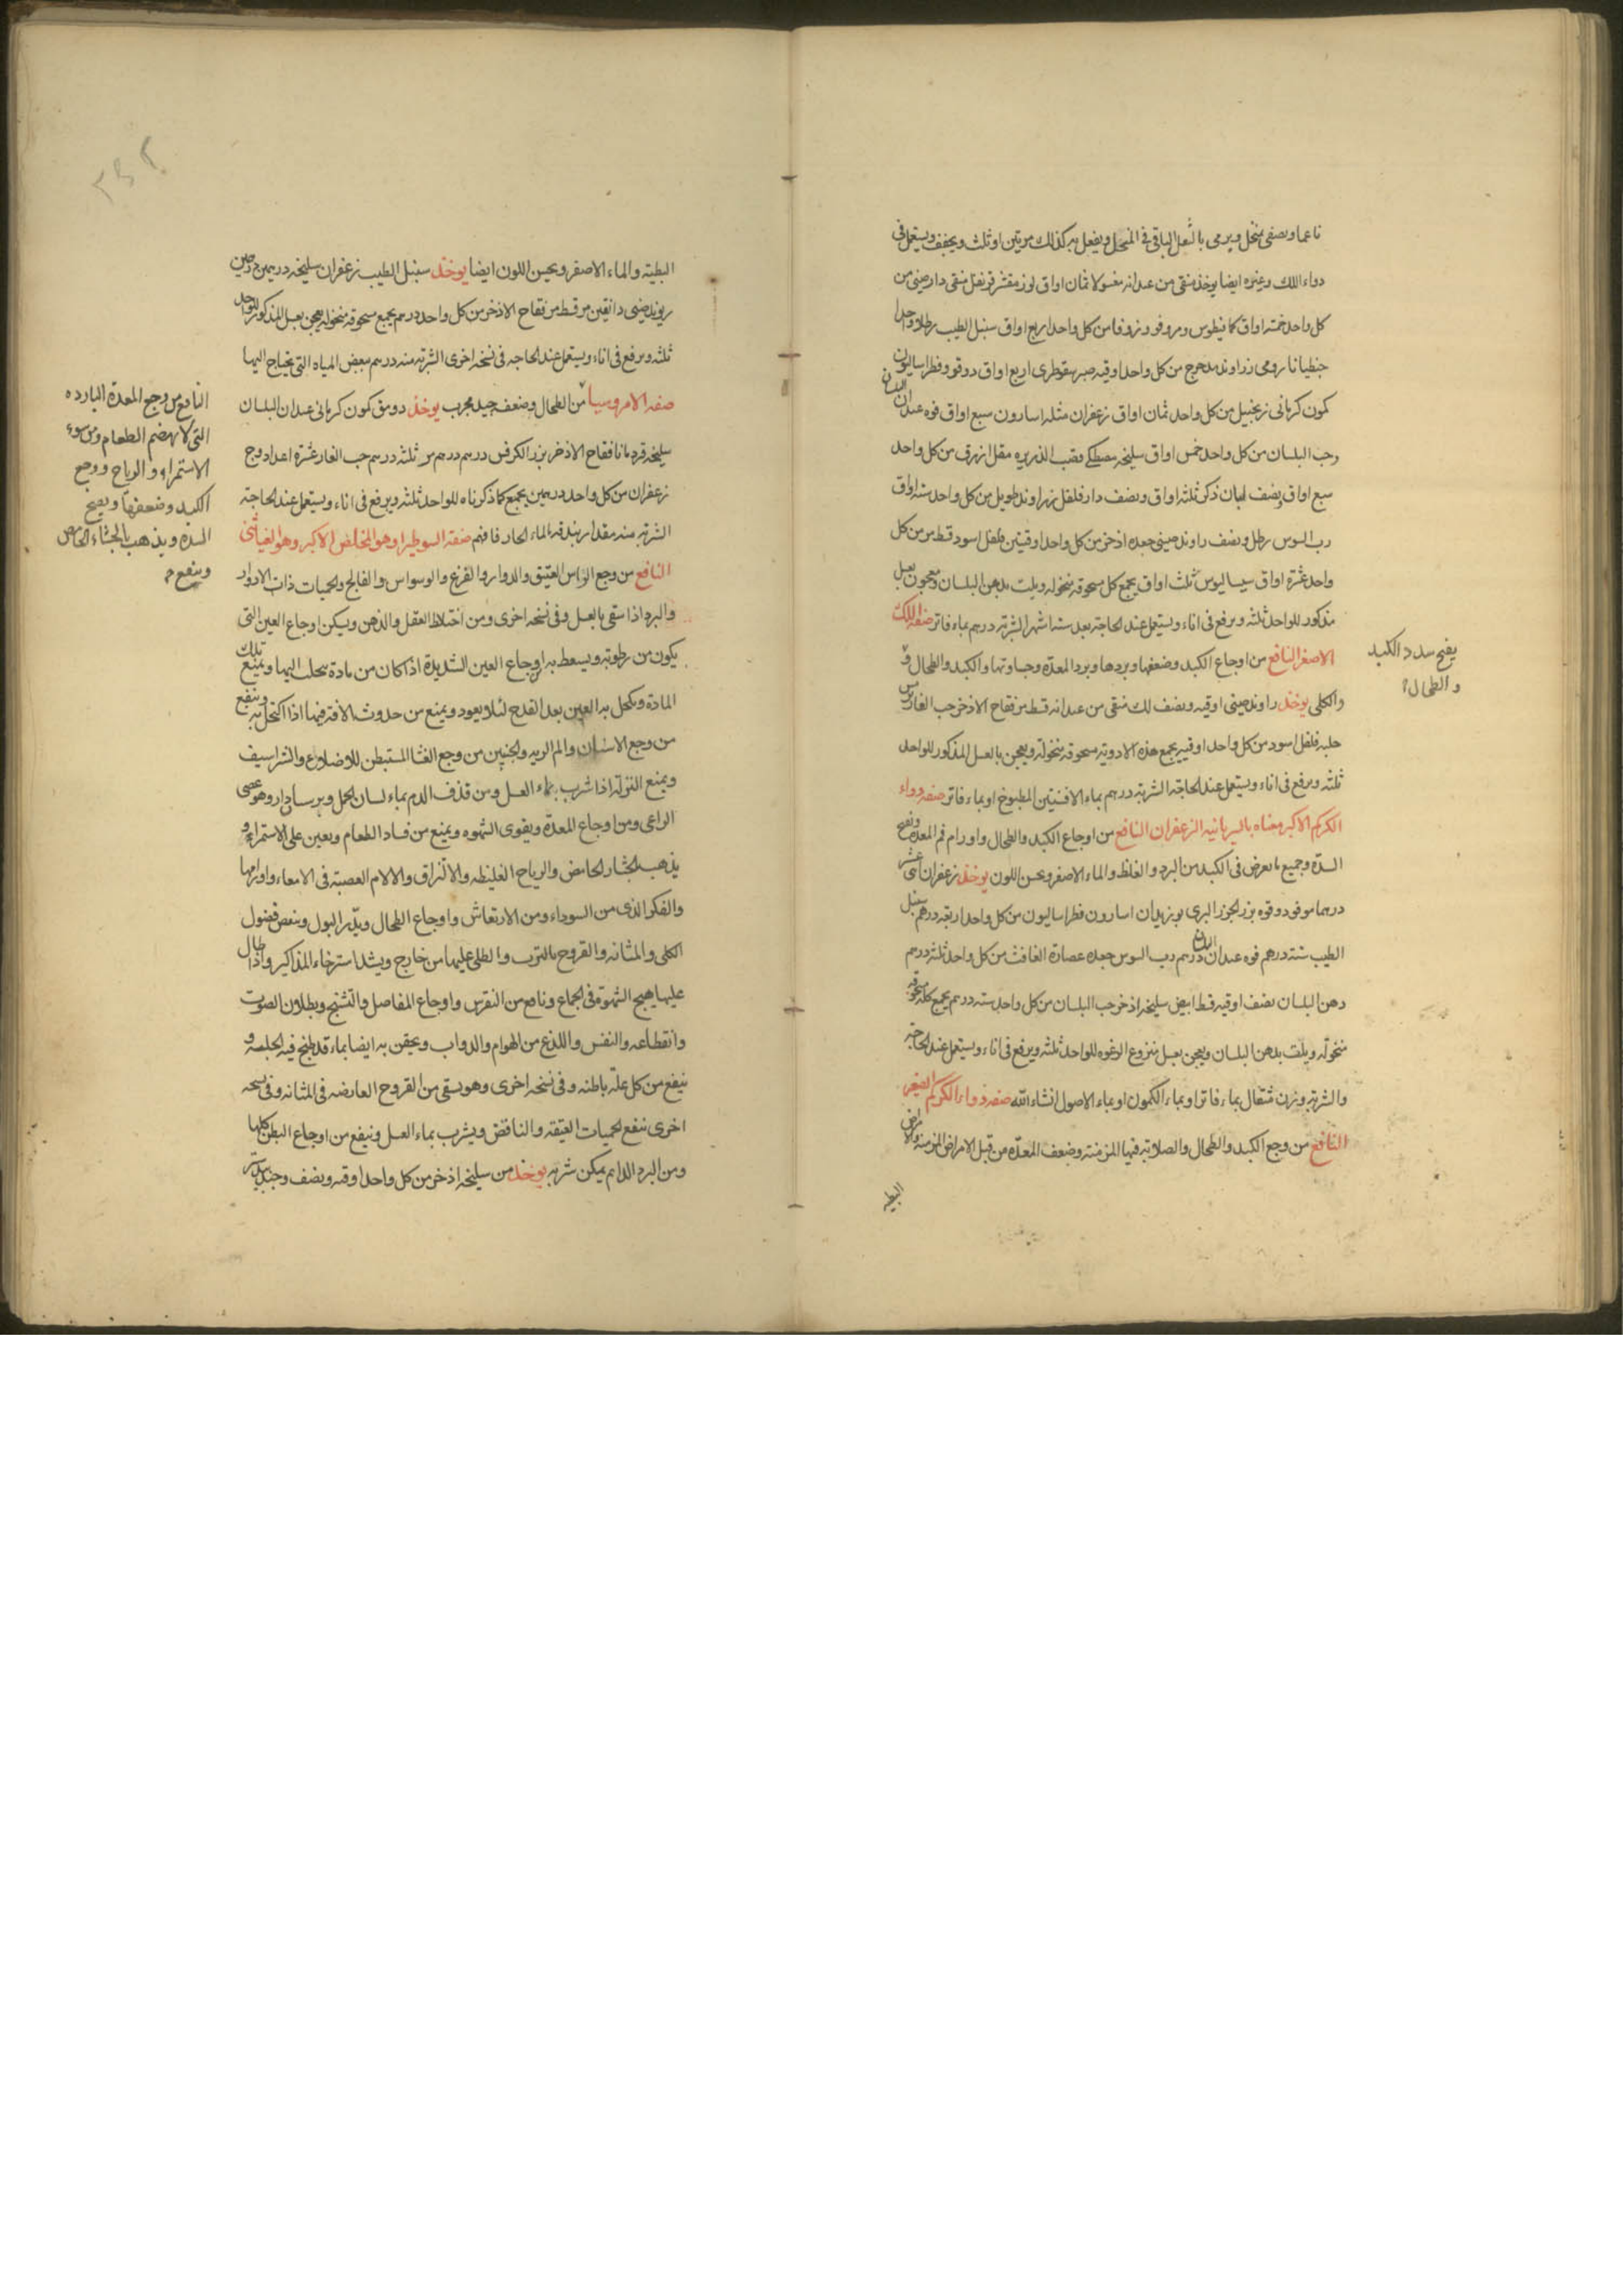 ناعما ويصفى بمنخل ويرمى بالثفل الباقى فى المنخل ويفعل به كذلك مرتين او ثلث ويجفف ويستعمل فى
دواء اللك وغيره ايضا يوخذ منقى من عيدانه مغسولا ثمان اواق لوز مقشر قرنفل منقى دارصينى من
كل واحد خمسه اواق كمافيطوس ومر وفوه وزوفا من كل واحد اربع اواق سنبل الطيب رطلا واحدا
جنطيانا رومى زراوند مدحرج من كل واحد اوقيه صبر سقوطرى اربع اواق دوقو وفطراساليون
كمون كرمانى زنجبيل من كل واحد ثمان اواق زعفران مثله اسارون سبع اواق فوه عيدان البلسان
وحب البلسان من كل واحد خمس اواق سليخه مصطكى قصب الذريره مقل ازرق من كل واحد
سبع اواق ونصف لبان ذكر ثلثه اواق ونصف دارفلفل زراوند طويل من كل واحد سته اواق
رب السوس رطل ونصف راوند صينى جعده اذخر من كل واحد اوقيتين فلفل اسود قسط مر من كل
واحد عشرة اواق سيساليوس ثلث اواق يجمع كل مسحوقه منخوله ويلت بدهن البلسان ومعجون بعسل
مذكور للواحد ثلثه ويرفع فى اناء ويستعمل عند الحاجة بعد ستة اشهر الشربة درهم بماء فاتر صفه اللك
الاصغر النافع من اوجاع الكبد وضعفها وبردها وبرد المعدة وجساوتها والكبد والطحال و
يفتح سدد الكبد
والطحال
والكلى يوخذ راوند صينى اوقيه ونصف لك منقى من عيدانه قسط مر فقاح الاذخر حب الغار
حلبه فلفل اسود من كل واحد اوقيه يجمع هذه الادوية مسحوقه منخولة ويعجن بالعسل المذكور للواحد
ثلثه ويرفع فى اناء ويستعمل عند الحاجة الشربة درهم بماء الافسنتين المطبوخ او بماء فاتر صفه دواء
الكركم الاكبر معناه بالسريانيه الزعفران النافع من اوجاع الكبد والطحال واورام فم المعدة ويفتح
السدة وجميع ما يعرض فى الكبد من البرد والغلظ والماء الاصفر ويحسن اللون يوخذ زعفران اثنى عشر
درهما مو فو دوقوه بزر الجزر البرى اسارون فطراساليون من كل واحد اربعة درهم سنبل
الطيب ستة درهم فوه عيدان درهم رب السوس جعده عصارة الغافث من كل واحد ثلثة درهم
دهن البلسان نصف اوقيه قسط ابيض سليخه اذخر حب البلسان من كل واحد سته درهم يجمع كله مسحوقه
منخوله ويلت بدهن البلسان ويعجن بعسل منزوع الرغوه للواحد ثلثه ويرفع فى اناء ويستعمل عند الحاجة
والشربة وزن مثقال بماء فاتر او بماء الكمون او بماء الاصول انشاء الله صفه دواء الكركم الصغير
النافع من وجع الكبد والطحال والصلابة فيها المزمنة وضعف المعدة من قبل الامراض المزمنة والامراض
البطيه
البطيه والماء الاصفر ويحسن اللون ايضا يوخذ سنبل الطيب زعفران سليخه درهمين درهمين
ريوند صينى دانقين مر قسط مر فقاح الاذخر من كل واحد درهم يجمع مسحوقه منخوله يعجن بعسل المذكور للواحد
ثلثه ويرفع فى اناء ويستعمل عند الحاجه فى نسخه اخرى الشربة منه درهم ببعض المياه التى يحتاج اليها
صفه الامروسيا من الطحال وضعف جيد مجرب يوخذ دوقو كمون كرمانى عيدان البلسان
النافع من وجع المعدة الباردة
التى لا تهضم الطعام ومن سوء
الاستمراء والرياح ووجع
الكبد وضعفها ويفتح
السدة ويذهب بالجشاء الحامض
وينفع
سليخه قردمانا فقاح الاذخر بزر الكرفس درهم درهم مر ثلثه درهم حب الغار عشرة اعداد وج
زعفران من كل واحد درهمين يجمع كما ذكرناه للواحد ثلثه ويرفع فى اناء ويستعمل عند الحاجة
الشربة منه مقدار بندقه بالماء الحار فافهم صفة السوطيرا وهو المخلص الاكبر وهو
النافع من وجع الراس العتيق والدوار والفزع والوسواس والفالج والحميات ذات الادوار
والبرد اذا سقى بالعسل وفى نسخه اخرى ومن اختلاط العقل والذهن ويسكن اوجاع العين التى
يكون من رطوبة ويسعط به لاوجاع العين الشديدة اذا كان من مادة تتحلب اليها ويمنع تلك
المادة ويكحل به العين بعد القدح لئلا يعود ويمنع من حدوث الافة فيها اذا اكتحل به وينفع
من وجع الاسنان والم الريه والجنبين من وجع الغشا المستبطن للاضلاع والشراسيف
ويمنع النزلة اذا شرب بماء العسل ومن قذف الدم بماء لسان الحمل وبرسان دارو وهو عصى
الراعى ومن اوجاع المعدة ويقوى الشهوه ويمنع من فساد الطعام ويعين على الاستمراء و
يذهب بالجشاء الحامض والرياح الغليظه والازلاق والالام العصبية فى الامعاء واورامها
والفكر الذى من السوداء ومن الارتعاش واوجاع الطحال ويدر البول وينعض فضول
الكلى والمثانه والقروح بالشرب والطلى عليها من خارج ويشد استرخاء المذاكير واذا طال
عليها هيج الشهوة فى الجماع ونافع من النقرس واوجاع المفاصل والتشنج وبطلان الصوت
وانقطاعه والنفس واللذع من الهوام والدواب ويحقن به ايضا بماء قد طبخ فيه الحلبه و
ينفع من كل علة باطنه وفى نسخه اخرى وهو يسقى من القروح العارضه فى المثانه وفى نسخه
اخرى ينفع لحميات العتيقه والنافض ويشرب بماء العسل وينفع من اوجاع البطن كلها
ومن البرد الدايم يمكن شربه يوخذ من سليخه اذخر من كل واحد اوقيه ونصف وجندبيدستر